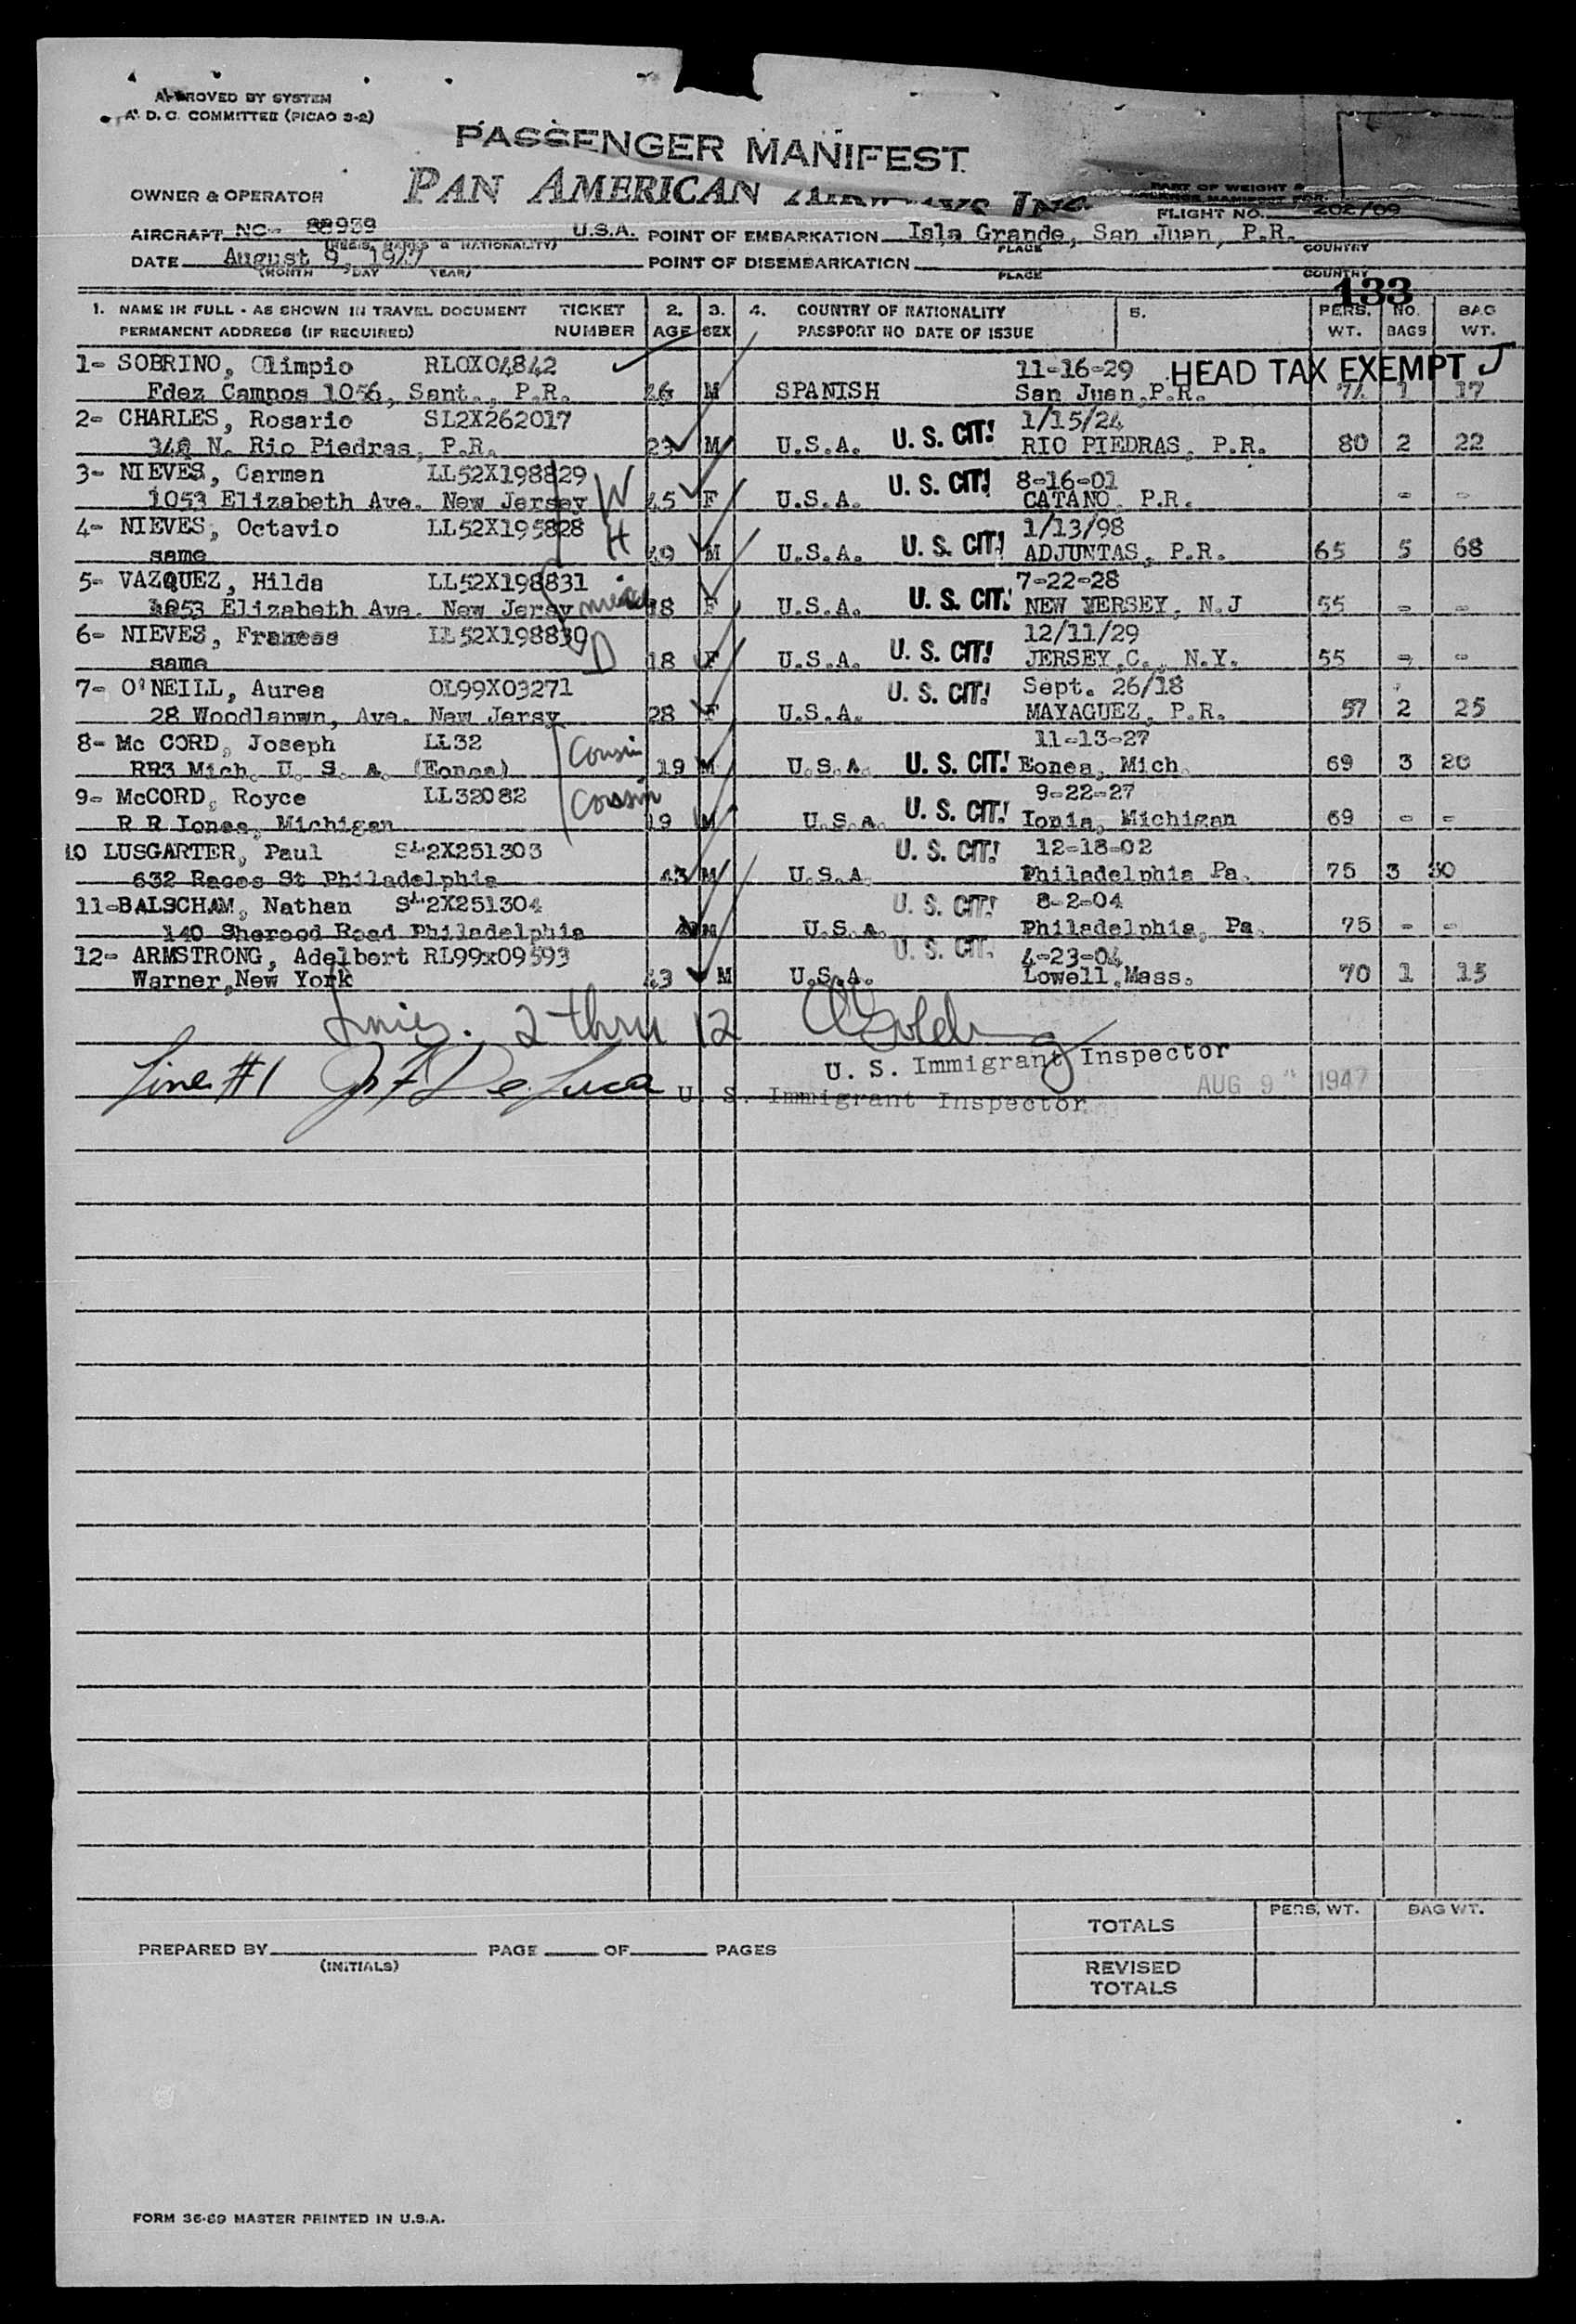 APPROVED BY SYSTEM
A. D. C. COMMITTEE (PICAO 3-2)
PASSENGER MANIFEST
OWNER & OPERATOR PAN AMERICAN AIRWAYS INC.
PART OF WEIGHT &
FLIGHT NO. 202/09
AIRCRAFT NC- 88939 U.S.A. POINT OF EMBARKATION Isla Grande, San Juan, P.R.
(REGIS. MARKS & NATIONALITY) PLACE COUNTRY
DATE August 9, 1947 POINT OF DISEMBARKATION
(MONTH DAY YEAR) PLACE COUNTRY
133
1. NAME IN FULL - AS SHOWN IN TRAVEL DOCUMENT TICKET 2. 3. 4. COUNTRY OF NATIONALITY 5. PERS. NO. BAG
PERMANENT ADDRESS (IF REQUIRED) NUMBER AGE SEX PASSPORT NO DATE OF ISSUE WT. BAGS WT.
1- SOBRINO, Olimpio RLOX04842 11-16-29 HEAD TAX EXEMPT
Fdez Campos 1056, Sant., P.R. M SPANISH San Juan,P.R. 74 1 17
2- CHARLES, Rosario SL2X262017 U. S. CIT! 1/15/24
N. Rio Piedras, P.R. 23 M U.S.A. RIO PIEDRAS, P.R. 80 2 22
3- NIEVES, Carmen LL52X198829 W U. S. CIT! 8-16-01
1053 Elizabeth Ave. New Jersey 45 F U.S.A. CATANO, P.R. - -
4- NIEVES, Octavio LL52X195828 H U. S. CIT! 1/13/98
same 49 M U.S.A. ADJUNTAS, P.R. 65 5 68
5- VAZQUEZ, Hilda LL52X198831 U. S. CIT! 7-22-28
1053 Elizabeth Ave. New Jersy niece 18 F U.S.A. NEW YERSEY, N.J 55 - -
6- NIEVES, Frances LL52X198830 D U. S. CIT! 12/11/29
same 18 F U.S.A. JERSEY,C., N.Y. 55 - -
7- O'NEILL, Aurea OL99X03271 U. S. CIT! Sept. 26/18
28 Woodlanwn, Ave. New Jersy 28 F U.S.A. MAYAGUEZ, P.R. 57 2 25
8- Mc CORD, Joseph LL32 Cousin 11-13-27
RR3 Mich. U. S. A. (Eonea) 19 M U.S.A. U. S. CIT! Eonea, Mich. 69 3 20
9- McCORD, Royce LL32082 Cousin 9-22-27
R R Ionea, Michigan 19 M U.S.A. U. S. CIT! Ionia, Michigan 69 - -
10 LUSGARTER, Paul SL2X251303 U. S. CIT! 12-18-02
632 Races St Philadelphia 43 M U.S.A. Philadelphia Pa. 75 3 50
11-BALSCHAM, Nathan SL2X251304 U. S. CIT! 8-2-04
140 Sherood Road Philadelphia M U.S.A. Philadelphia, Pa. 75 - -
12- ARMSTRONG, Adelbert RL99x09593 U. S. CIT. 4-23-04
Warner,New York 43 M U.S.A. Lowell,Mass. 70 1 15
Lines. 2 thru 12
U. S. Immigrant Inspector
Line #1 De Luca U. S. Immigrant Inspector AUG 9 1947
TOTALS PERS. WT. BAG WT.
PREPARED BY PAGE OF PAGES
(INITIALS)
REVISED
TOTALS
FORM 36-89 MASTER PRINTED IN U.S.A.